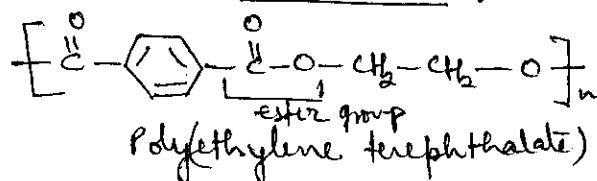 O O
[ C – C – O – CH₂ – CH₂ – O ]n
ester group
Poly(ethylene terephthalate)